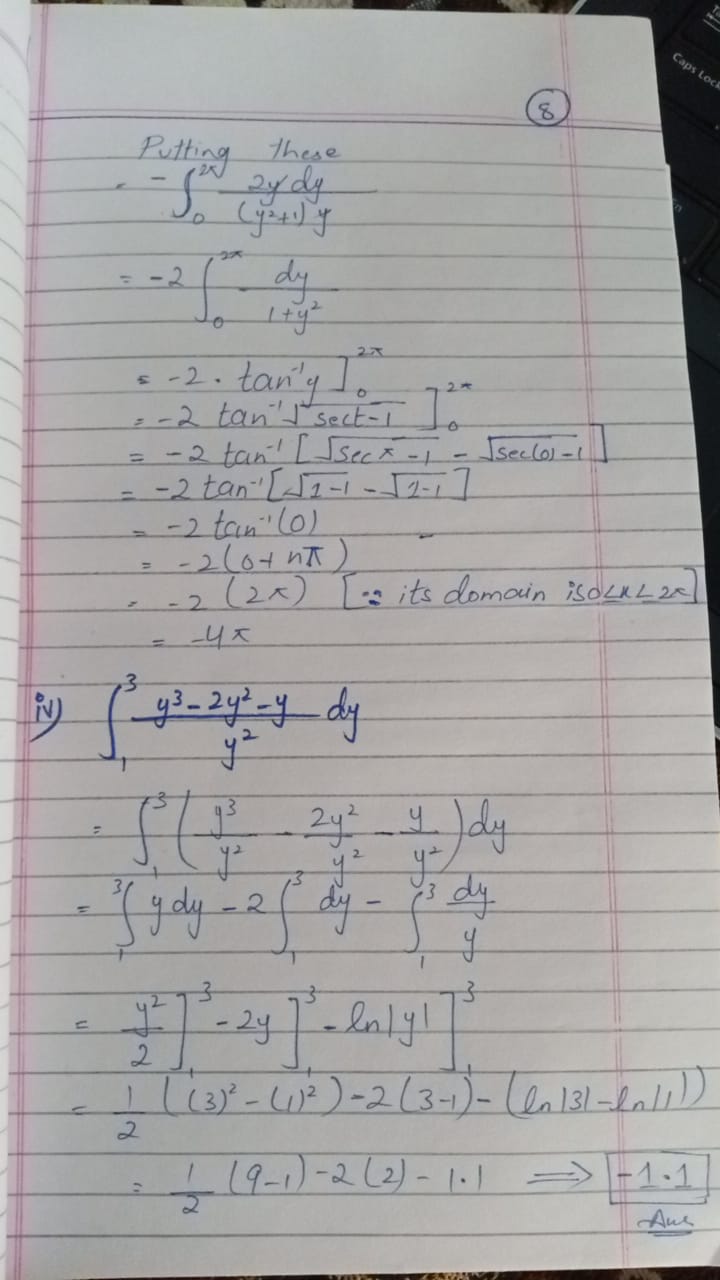 Caps Lock
8
Putting these
= -∫₀^2π 2y dy / (y²+1) y
= -2 ∫₀^2π dy / 1+y²
= -2 · tan⁻¹y ]₀^2π
= -2 tan⁻¹ √sect-1 ]₀^2π
= -2 tan⁻¹ [√secπ-1 - √sec(0)-1]
= -2 tan⁻¹ [√1-1 - √1-1]
= -2 tan⁻¹(0)
= -2(0+nπ)
= -2 (2π) [∵ its domain is 0≤x≤2π]
= -4π
iv) ∫₁³ y³-2y²-y / y² dy
= ∫₁³ (y³/y² - 2y²/y² - y/y²) dy
= ∫₁³ y dy - 2 ∫₁³ dy - ∫₁³ dy/y
= y²/2 ]₁³ - 2y ]₁³ - ln|y| ]₁³
= 1/2 ((3)²-(1)²) - 2(3-1) - (ln|3|-ln|1|)
= 1/2 (9-1) - 2(2) - 1.1 ⟹ -1.1
Ans